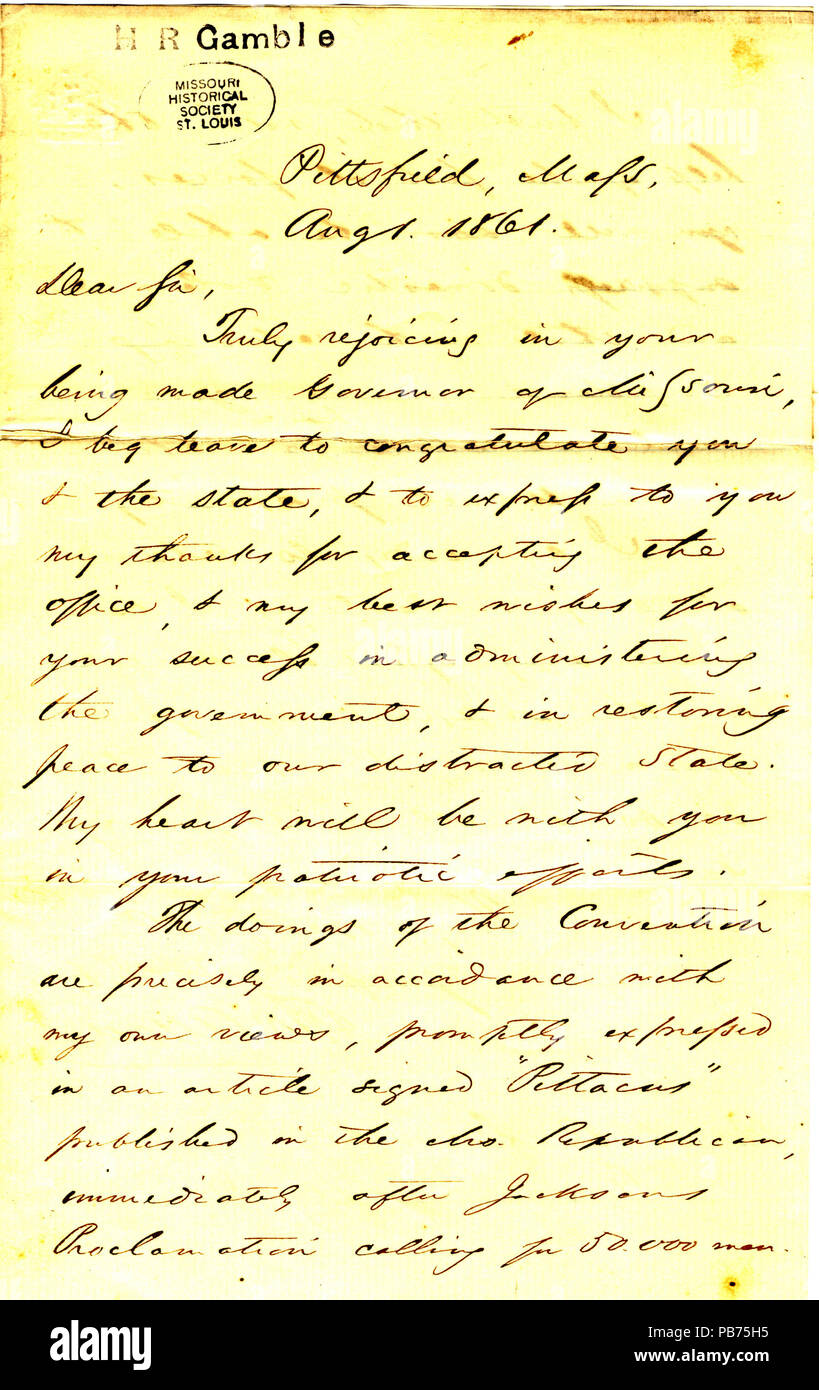 H R Gamble
MISSOURI
HISTORICAL
SOCIETY
ST. LOUIS
Pittsfield, Mass,
Aug 1. 1861.
Dear Sir,
Truly rejoicing in your
being made Governor of Missouri,
I beg leave to congratulate you
& the state, & to express to you
my thanks for accepting the
office, & my best wishes for
your success in administering
the government, & in restoring
peace to our distracted State.
My heart will be with you
in your patriotic efforts.
The doings of the Convention
are precisely in accordance with
my own views, promptly expressed
in an article signed "Pittacus"
published in the Mo. Republican,
immediately after Jacksons
Proclamation calling for 50.000 men.
alamy
Image ID: PB75H5
www.alamy.com